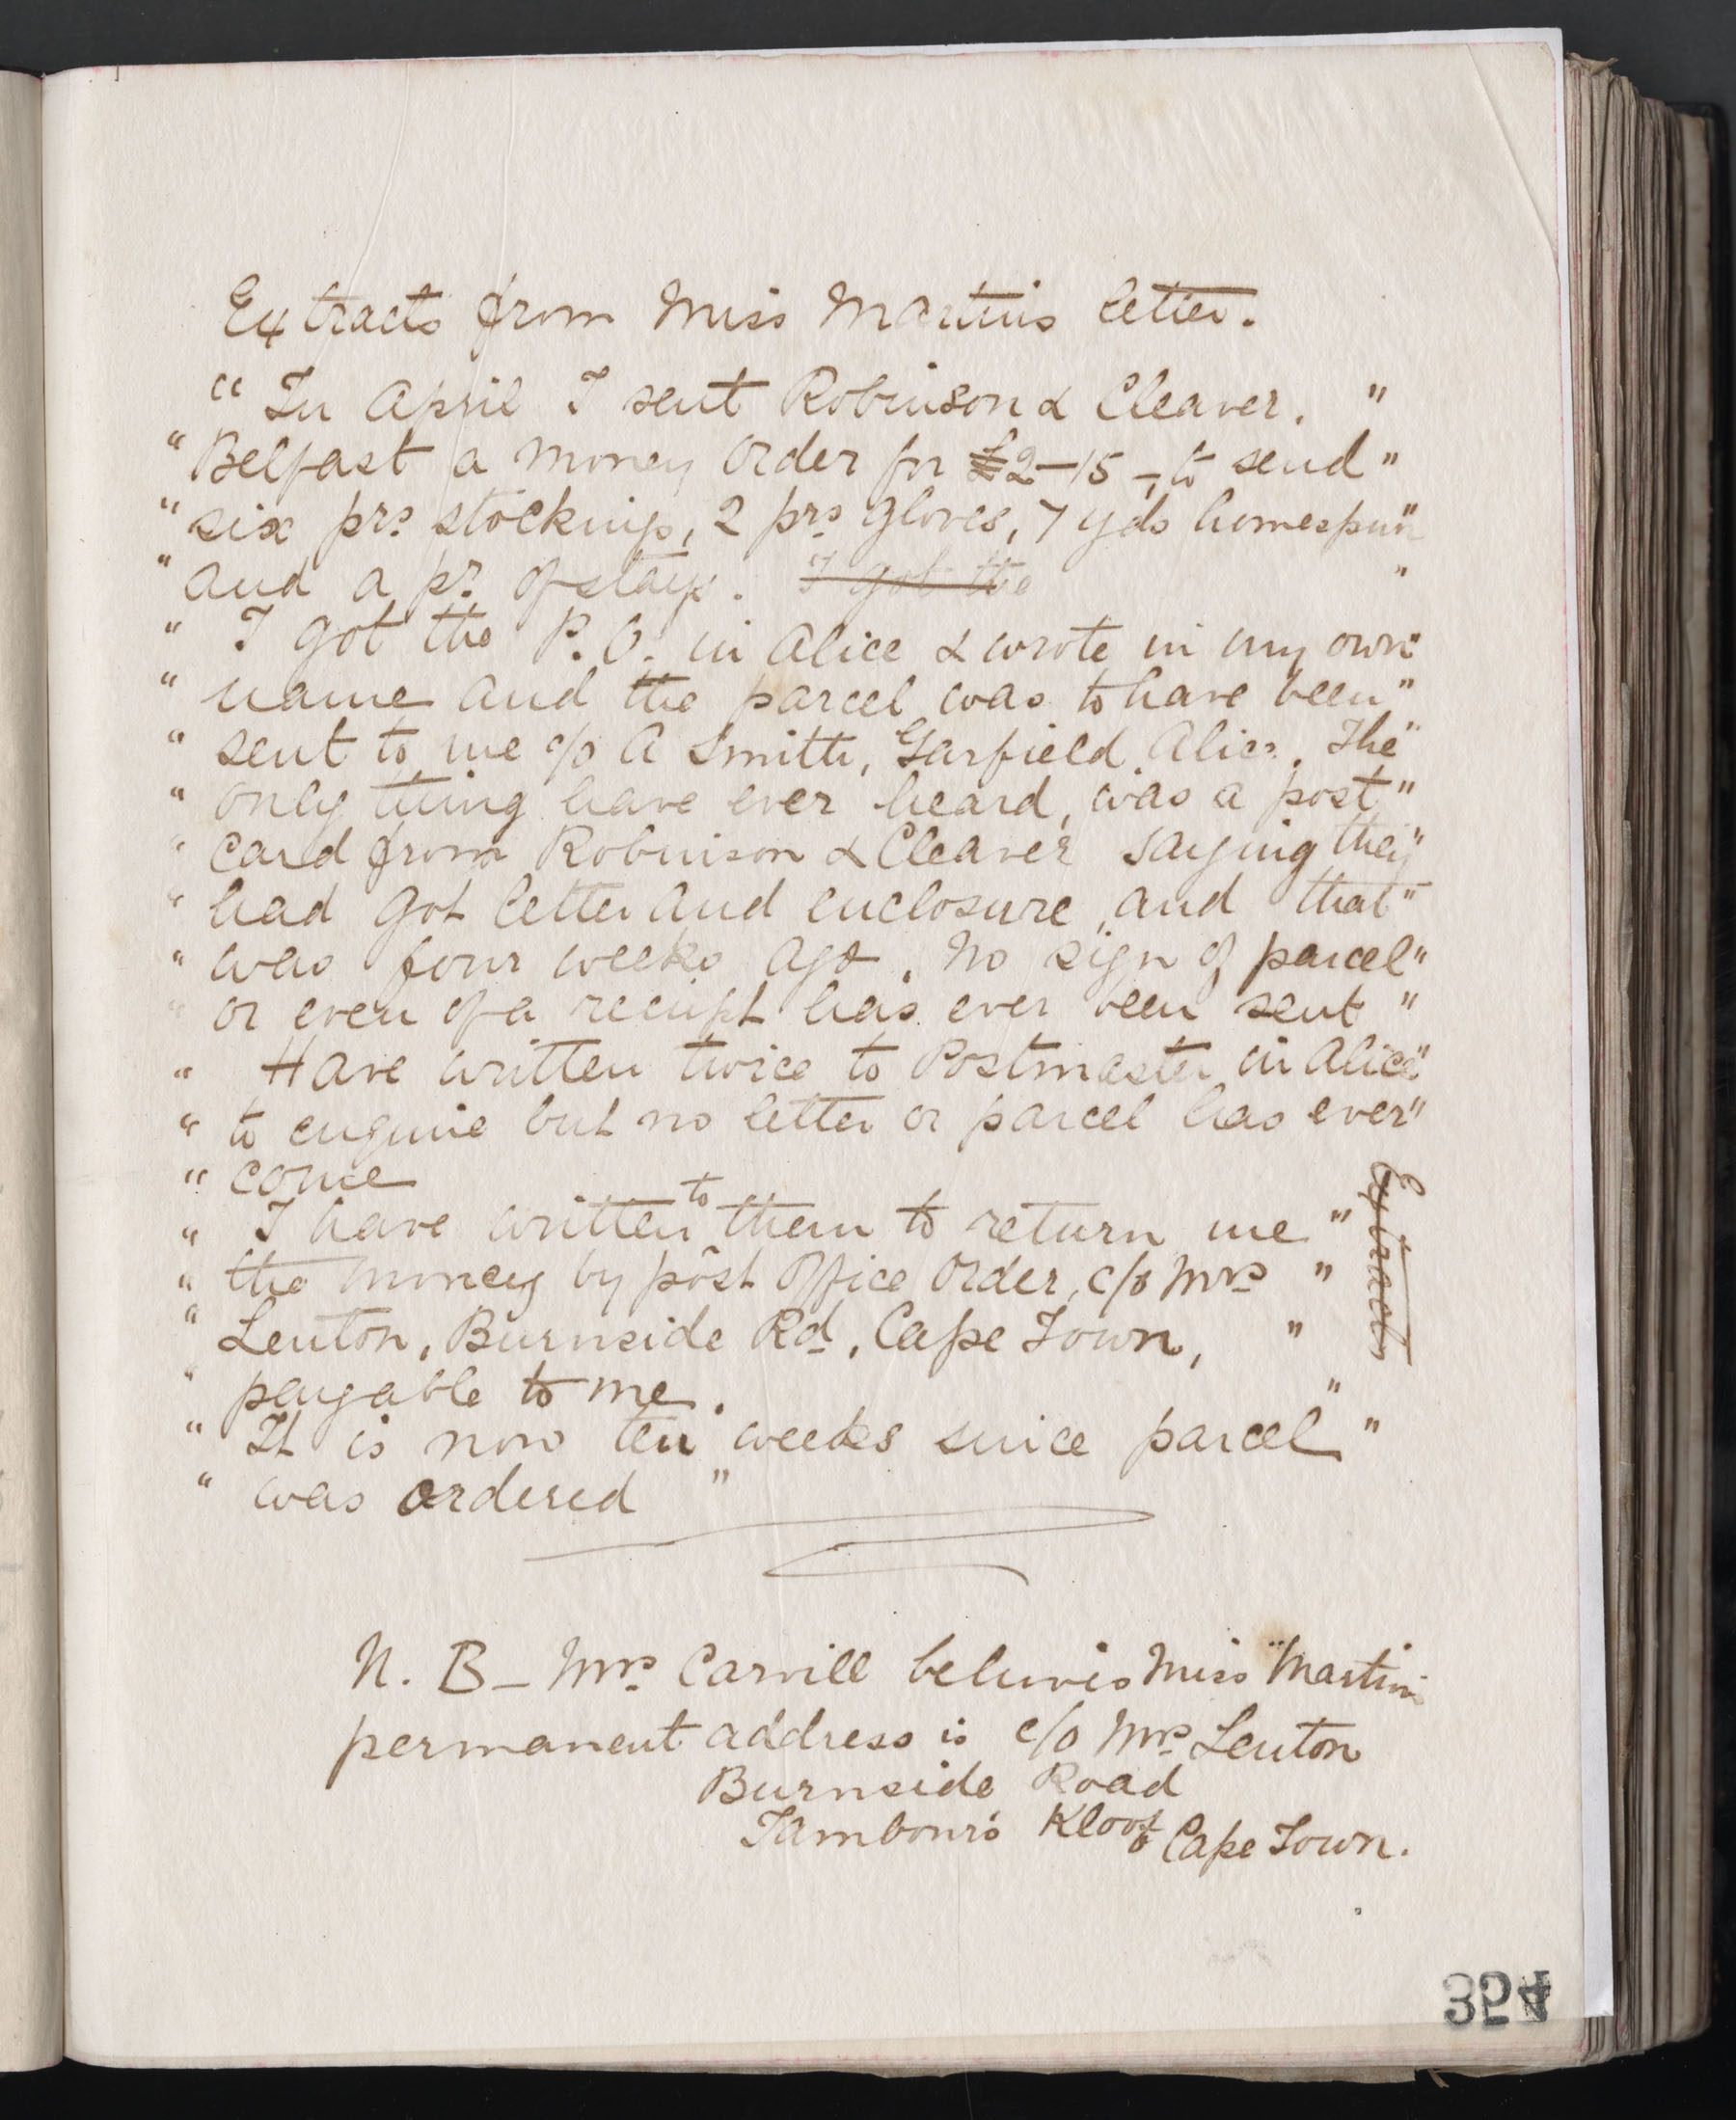 Extracts from Miss Martins letter.
“ In April I sent Robinson & Cleaver. "
“ Belfast a money order for £2-15-, to send "
“ six prs stockings, 2 prs gloves, 7 yds homespun "
“ and a pr. of stays. I got the "
“ I got the P.O. in Alice & wrote in my own "
“ name and the parcel was to have been "
“ sent to me c/o A Smith, Garfield Alice. The "
“ only thing have ever heard, was a post "
“ card from Robinson & Cleaver saying they "
“ had got letter and enclosure, and that "
“ was four weeks ago. No sign of parcel "
“ or even of a receipt has ever been sent "
“ Have written twice to Postmaster in Alice "
“ to enquire but no letter or parcel has ever "
“ come
“ I have written to them to return me "
“ the money by post office order, c/o Mrs "
“ Lenton, Burnside Rd, Cape Town, "
“ payable to me. "
“ It is now ten weeks since parcel "
“ was ordered "
Extracts
N. B - Mrs. Carvill believes Miss Martins
permanent address is c/o Mrs. Lenton
Burnside Road
Tambour's Kloof Cape Town.
354